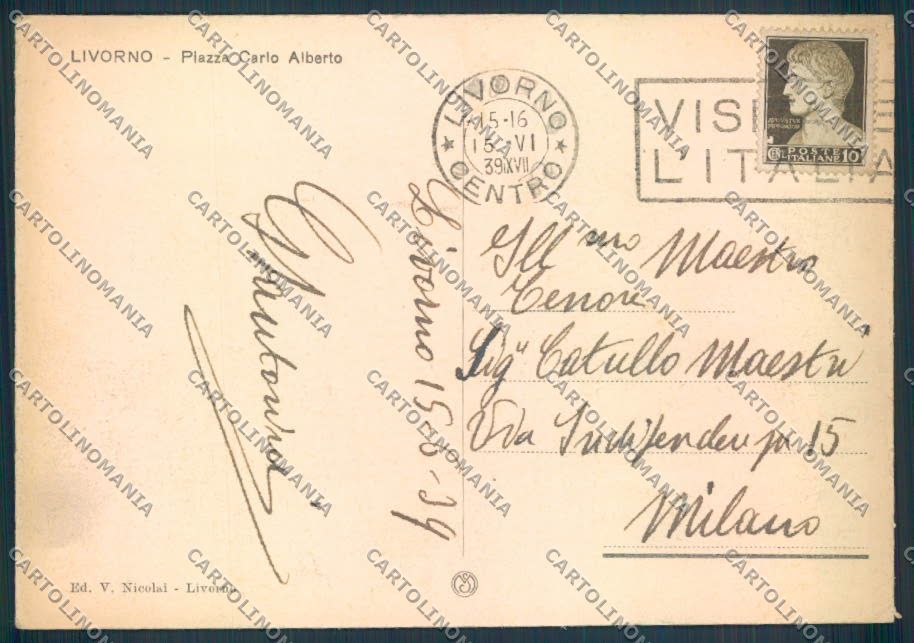 LIVORNO - Piazza Carlo Alberto
LIVORNO
15-16
15 VI
39 XVII
CENTRO
VISITATE
L'ITALIA
POSTE
ITALIANE 10
Livorno 15-6-39
Ill mo Maestro
Tenore
Sig Catullo Maestri
Via Indipendenza 15
Milano
Ed. V. Nicolai - Livorno
CARTOLINOMANIA